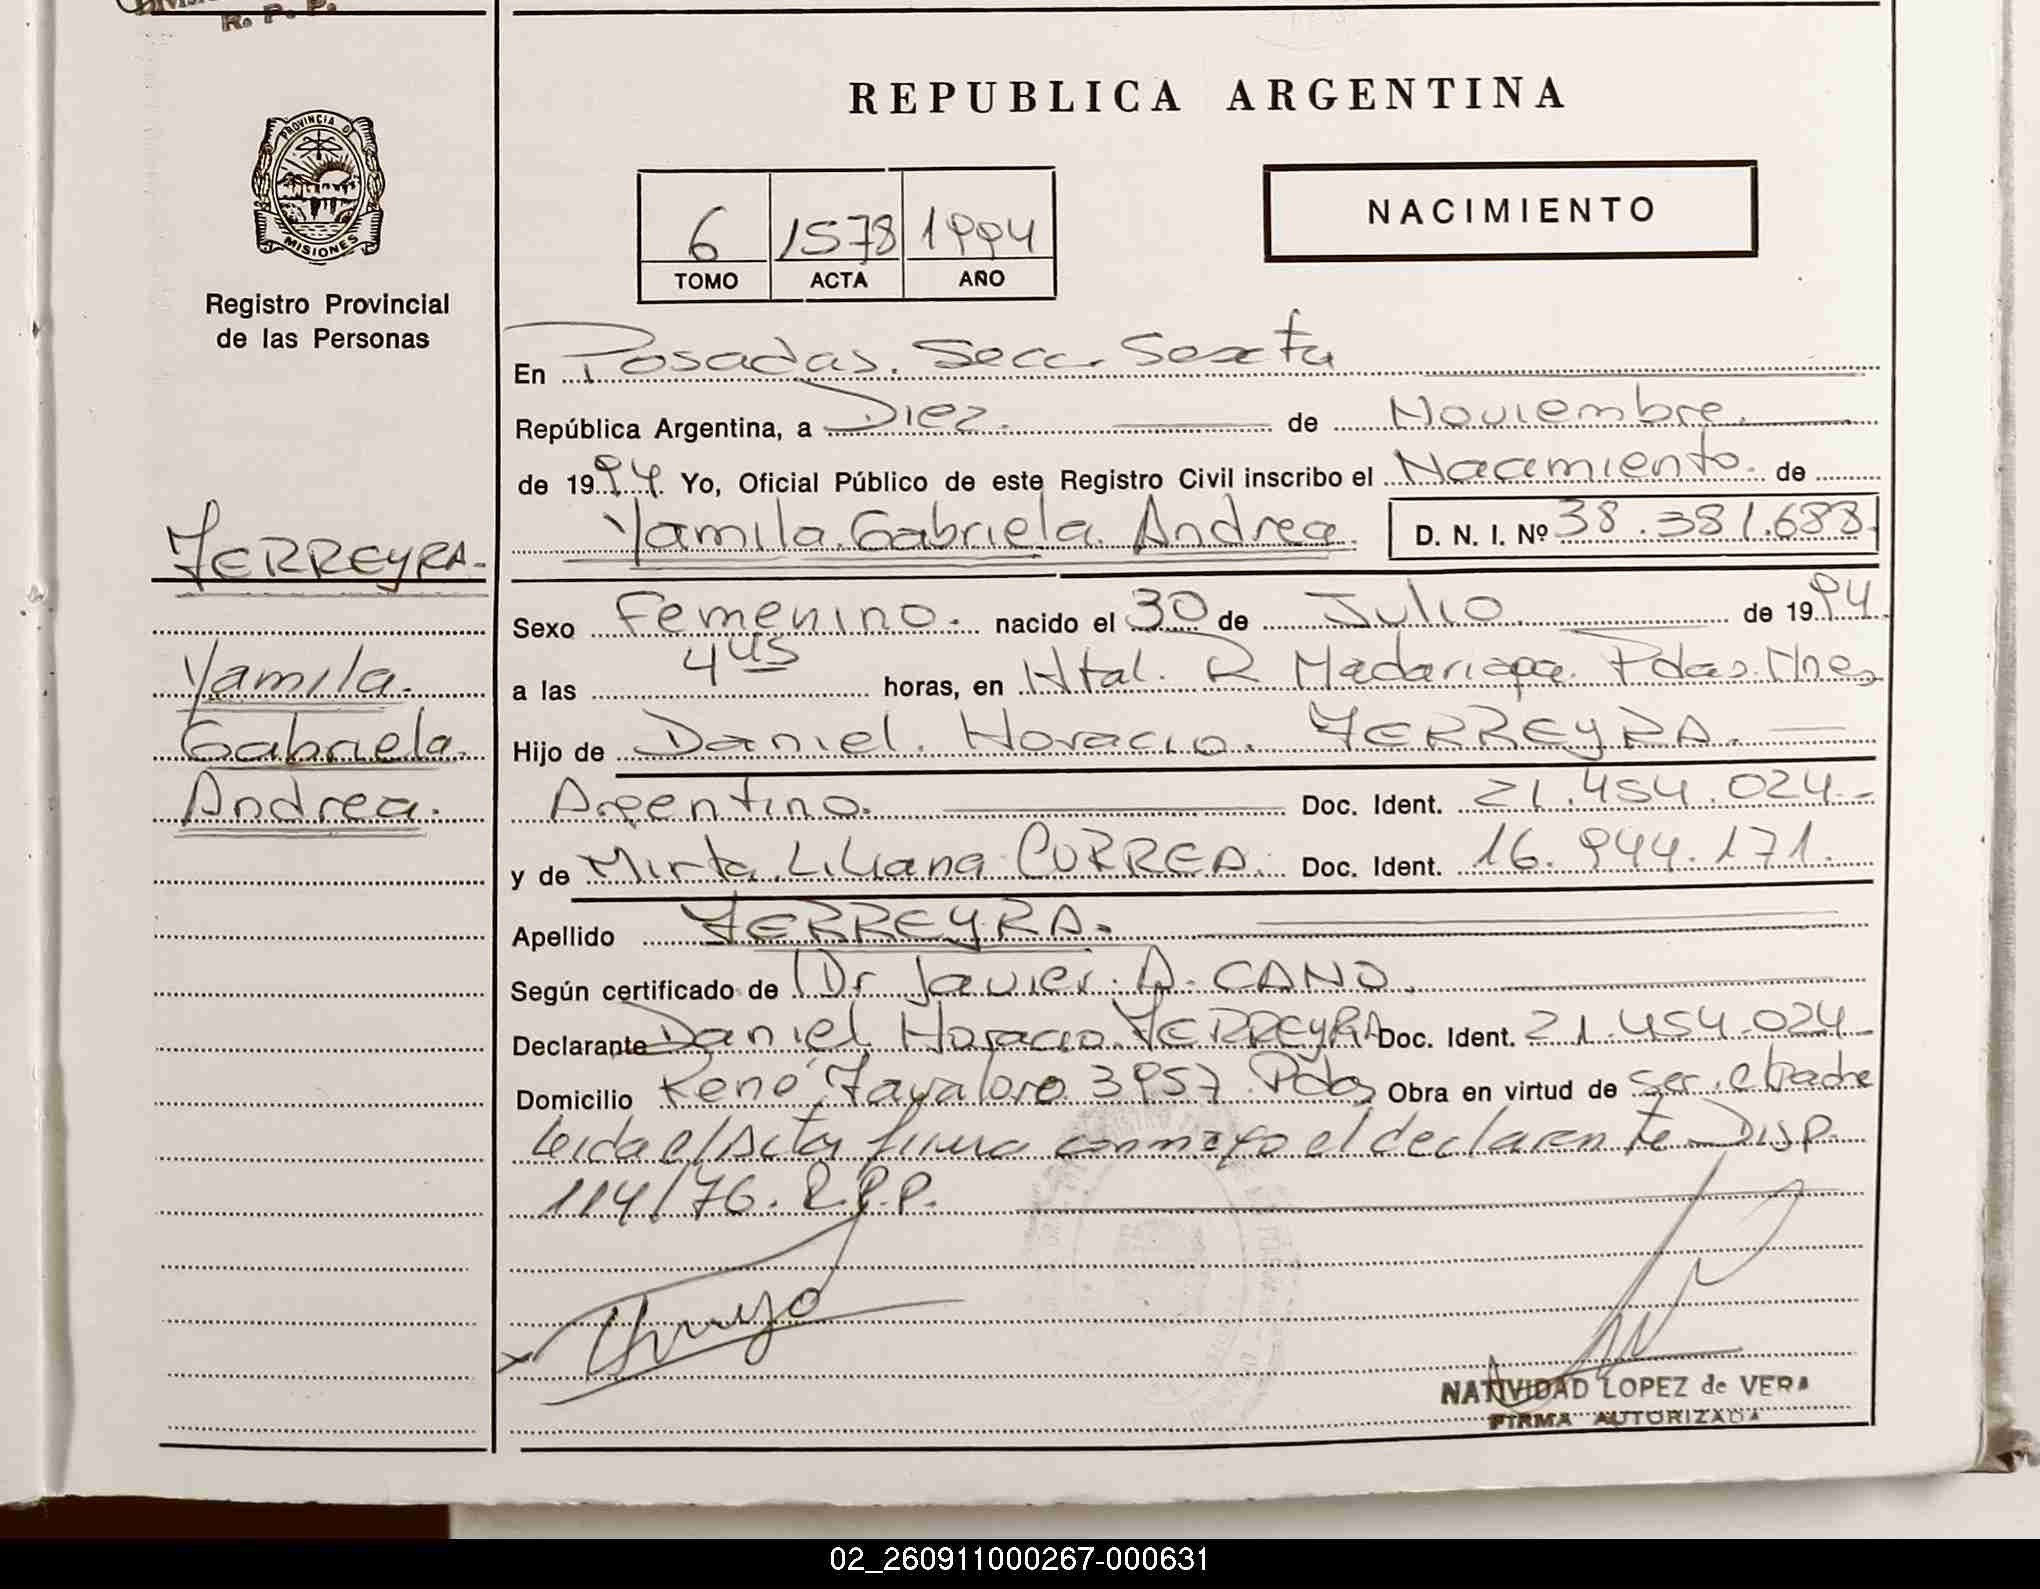 R. P. P.
REPUBLICA ARGENTINA
PROVINCIA D
MISIONES
Registro Provincial
de las Personas
NACIMIENTO
6 1578 1994
TOMO ACTA AÑO
En Posadas. Secc. Sexta
República Argentina, a Diez. de Noviembre.
de 1994. Yo, Oficial Público de este Registro Civil inscribo el Nacimiento. de
Yamila Gabriela Andrea. D. N. I. Nº 38.381.688.
FERREYRA.
Sexo Femenino. nacido el 30 de Julio de 1994.
a las 4 45 horas, en Htal. R Madariaga. Pdas. Mnes
Yamila.
Gabriela.
Andrea.
Hijo de Daniel. Horacio. FERREYRA.
Argentino. Doc. Ident. 21.454.024
y de Mirta Liliana CORREA. Doc. Ident. 16.944.171.
Apellido FERREYRA.
Según certificado de Dr Javier A. CANO.
Declarante Daniel Horacio FERREYRA Doc. Ident. 21.454.024
Domicilio René Favaloro 3957 Pdas Obra en virtud de ser el Padre
Leida el Acta firma conmigo el declarante Disp.
114/76. R.P.P.
NATIVIDAD LOPEZ de VERA
FIRMA AUTORIZADA
02_260911000267-000631